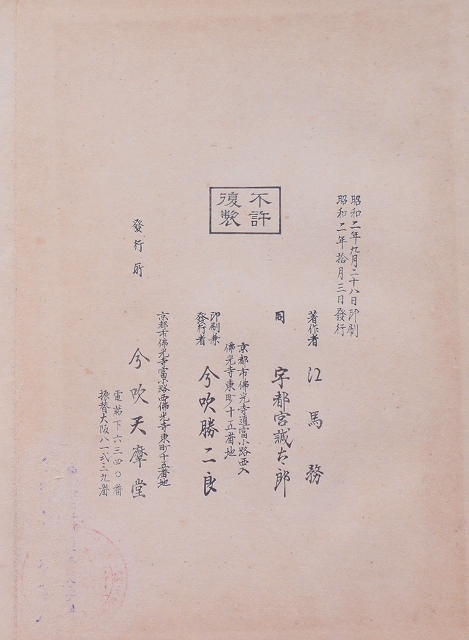 昭和二年九月二十八日印刷
昭和二年拾月三日發行
不許
復製
著作者 江馬務
同 宇都宮誠太郎
京都市佛光寺通富小路西入
佛光寺東町十五番地
印刷兼
發行者 今吹勝二良
京都市佛光寺富小路西佛光寺東町十五番地
發行所 今吹天摩堂
電話下六三四〇番
振替大阪八一弐三九番